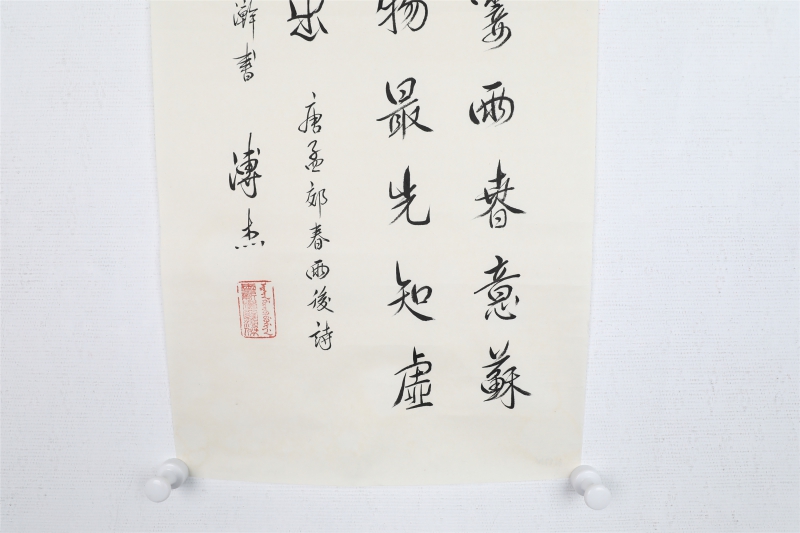 雨春意蘇
物最先知虛
出
唐孟郊春雨後詩
書 溥杰